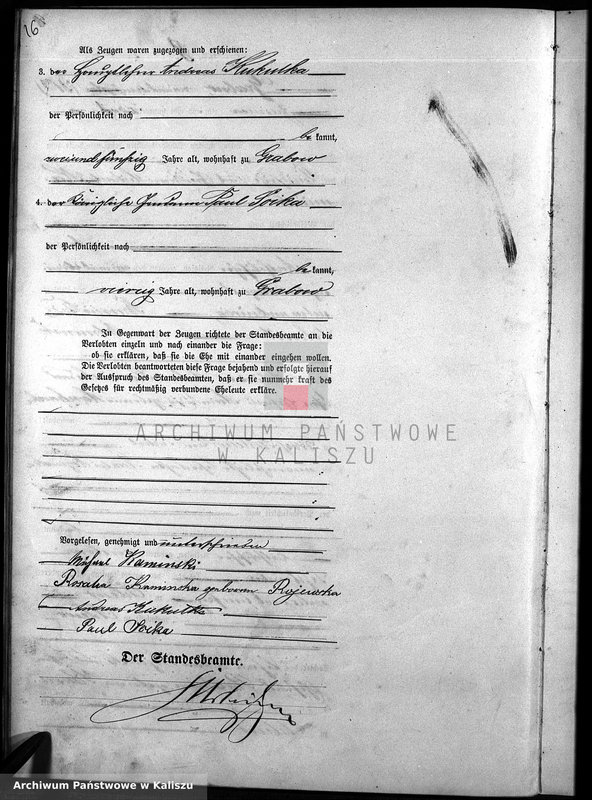 16
Als Zeugen waren zugezogen und erschienen:
3. der Hauptlehrer Andreas Kukulka
der Persönlichkeit nach
be kannt,
Jahre alt, wohnhaft zu Grabow
4. der Königliche Paul Soika
der Persönlichkeit nach
be kannt,
vierzig Jahre alt, wohnhaft zu Grabow
In Gegenwart der Zeugen richtete der Standesbeamte an die
Verlobten einzeln und nach einander die Frage:
ob sie erklären, daß sie die Ehe mit einander eingehen wollen.
Die Verlobten beantworteten diese Frage bejahend und erfolgte hierauf
der Ausspruch des Standesbeamten, daß er sie nunmehr kraft des
Gesetzes für rechtmäßig verbundene Eheleute erkläre.
ARCHIWUM PAŃSTWOWE
W KALISZU
Vorgelesen, genehmigt und unterschrieben
Michael Kaminski
Rosalia Kaminska geborene
Andreas Kukulka
Paul Soika
Der Standesbeamte.
Archiwum Państwowe w Kaliszu